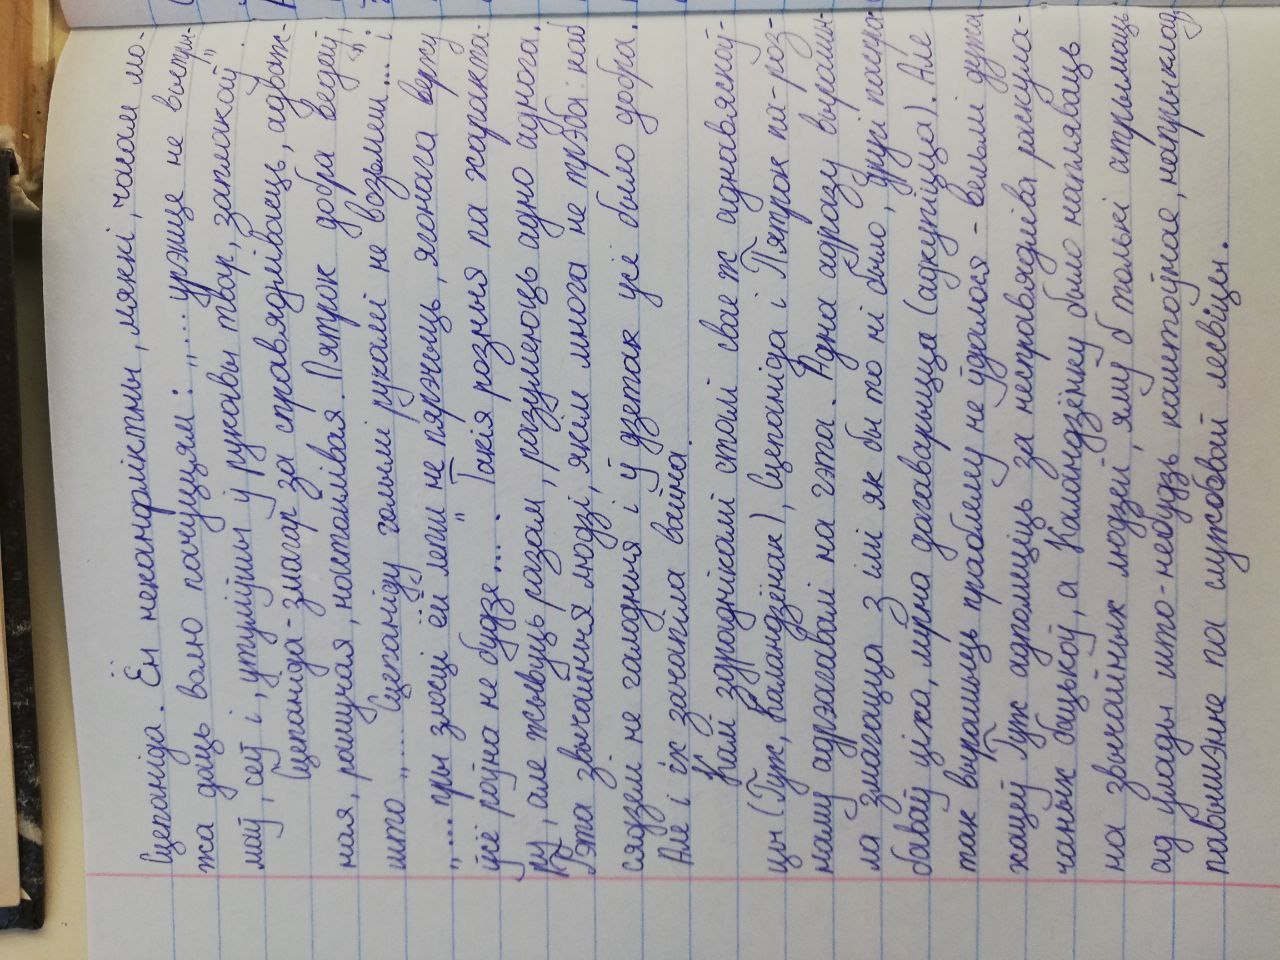 Сцепаніда. Ён неканфліктны, мяккі, часам мо-
жа даць волю пачуццям: „... урэшце не вытры-
маў, сеў і, уткнуўшы ў рукавы твар, заплакаў".
Сцепаніда-змагар за справядлівасць, адваж-
ная, рашучая, настойлівая. Пятрок добра ведаў,
што „... Сцепаніду голымі рукамі не возьмеш...";
„... пры злосці ёй лепш не пярэчыць, ягонага верху
ўсё роўна не будзе...". Такія розныя па характа-
ру, але жывуць разам, разумеюць адно аднога.
Гэта звычайныя людзі, якім многа не трэба: каб
сядзелі не галодныя і ў дзетак усё было добра.
Але і іх зачапіла вайна.
Калі здраднікамі сталі свае ж аднавяскоў-
цы (Гуж, Каландзёнак), Сцепаніда і Пятрок па-роз-
наму адрэагавалі на гэта. Адна адразу вырашы-
ла змагацца з імі як бы то ні было, другі паспра-
баваў ціха, мірна дагаварыцца (адкупіцца). Але
так вырашыць праблему не ўдалося - вельмі дужа
жадаў Гуж адпомсціць за несправядліва раскула-
чаных бацькоў, а Каландзёнку было напляваць
на звычайных людзей, яму б толькі атрымаць
ад улады што-небудзь каштоўнае, напрыклад,
павышэнне па службовай лесвіцы.